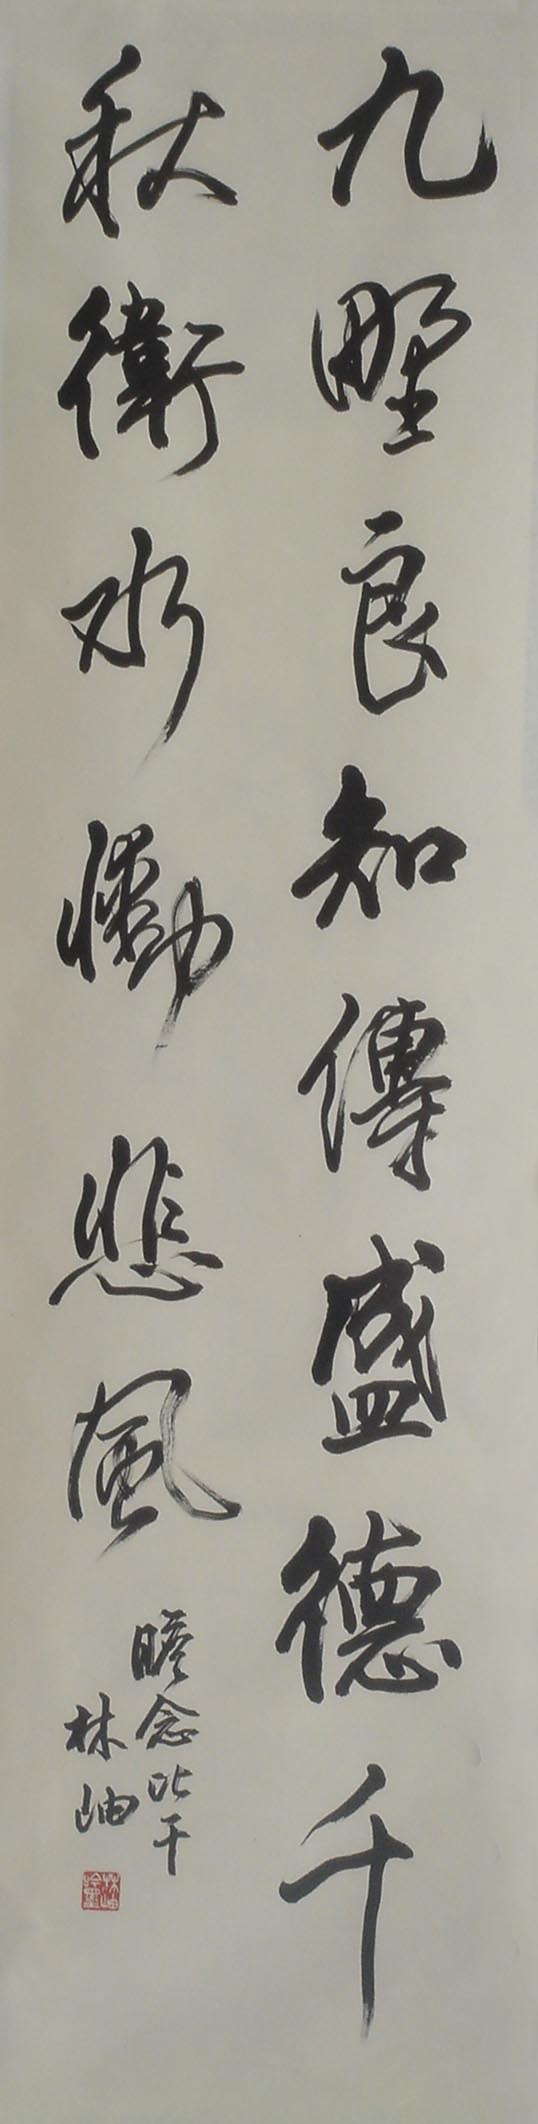 九野良知傳盛德千
秋衛水慟悲風
瞻念比干
林岫